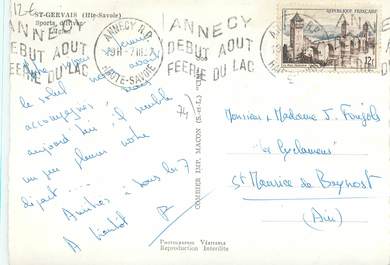 ST-GERVAIS (Hte-Savoie)
Sports d'Hiver
ANNECY
DEBUT AOUT
FEERIE DU LAC
ANNECY R.P.
HAUTE-SAVOIE
ANNECY
DEBUT AOUT
FEERIE DU LAC
REPUBLIQUE FRANÇAISE
12f
le soleil nous
accompagné, il semble
aujourd'hui
un peu pleurer notre
départ...
Amitiés à tous les 7
A bientôt
(74)
COMBIER IMP. MACON (S.-et-L.)
Monsieur et Madame J.
"Les Cyclamens"
St Maurice de Beynost
(Ain)
Reproduction Interdite